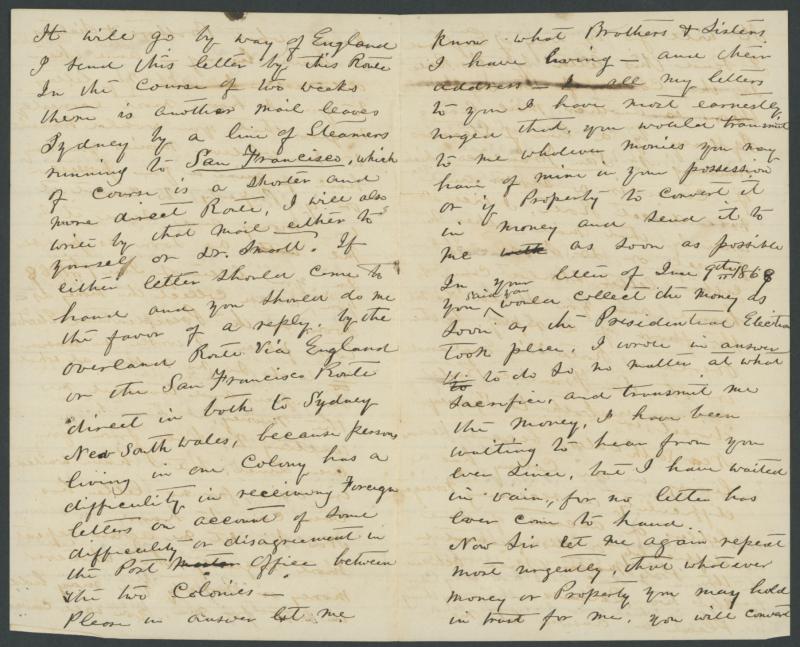 It will go by way of England
I send this letter by this Route
In the Course of two weeks
there is another mail leaves
Sydney by a line of Steamers
running to San Francisco, which
of course is a shorter and
more direct Route, I will also
write by that mail either to
yourself or Dr. Smoll. If
either letter should come to
hand and you should do me
the favor of a reply. by the
overland Route Via England
or the San Francisco Route
direct in both to Sydney
New South Wales, because persons
living in one Colony has a
difficulity in receiving Foreign
letters on account of some
difficulity or disagreement in
the Post Master Office between
the two Colonies —
Please in answer let me
know what Brothers & Sisters
I have living — and their
address — all my letters
to you I have most earnestly
urged that, you would transmit
to me whatever monies you may
have of mine in your possession
or if Property to convert it
in money and send it to
me with as soon as possible
In your letter of June 9th 1868
you said you would collect the money as
soon as the Presidential Election
took place, I wrote in answer
to do so no matter at what
sacrifice, and transmit me
the money, I have been
waiting to hear from you
ever since, but I have waited
in vain, for no letter has
ever come to hand.
Now Sir let me again repeat
most urgently, that whatever
money or Property you may hold
in trust for me, you will convert